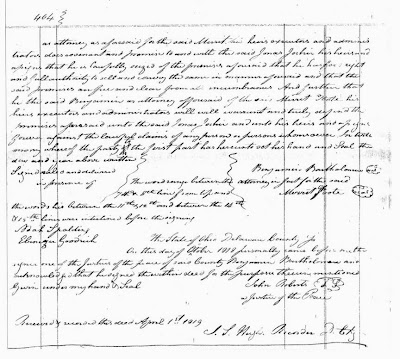 464
as attorney as aforesaid for the said Merret his heirs executors and adminis
trators does covenant and promise to and with the said Jonas Joslin his heirs and
assigns that he is lawfully seized of the premises aforesaid that he has good right
and full authority to sell and convey the same in manner aforesaid and that the
said premises are free and clear from all incumbrances And further that
he the said Benjamin as attorney aforesaid of the said Merret his
heirs executors and administrators will warrant and defend the
premises aforesaid unto the said Jonas Joslin and unto his heirs and assigns
forever against the lawful claims of any person or persons whomsoever In testi
mony whereof the party of the first part has hereunto set his hand and seal the
day and year above written
Signed sealed and delivered
in presence of
The word
between the
8th line from top, and
Benjamin Bartholomew
attorney in fact for the said
Merret
the words his between the 11th & 12th and between the 14th
& 15th lines were interlined before the signing
Noah Spalding
Ebenezer Goodrich
The State of Ohio Delaware County Ss
On this day of October 1818 personally came before me the
signer one of the Justices of the peace of said County Benjamin Bartholomew and
acknowledged that he signed the within deed for the purposes therein mentioned
Given under my hand & Seal
John Roberts
Justice of the Peace
Received & recorded this deed April 1st 1819
Recorder D. Cty